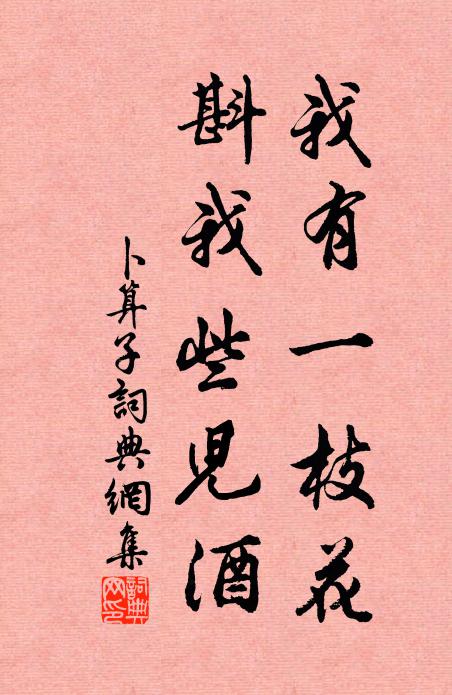 我有一枝花
斟我些兒酒
卜算子詞典網集
詞典網印